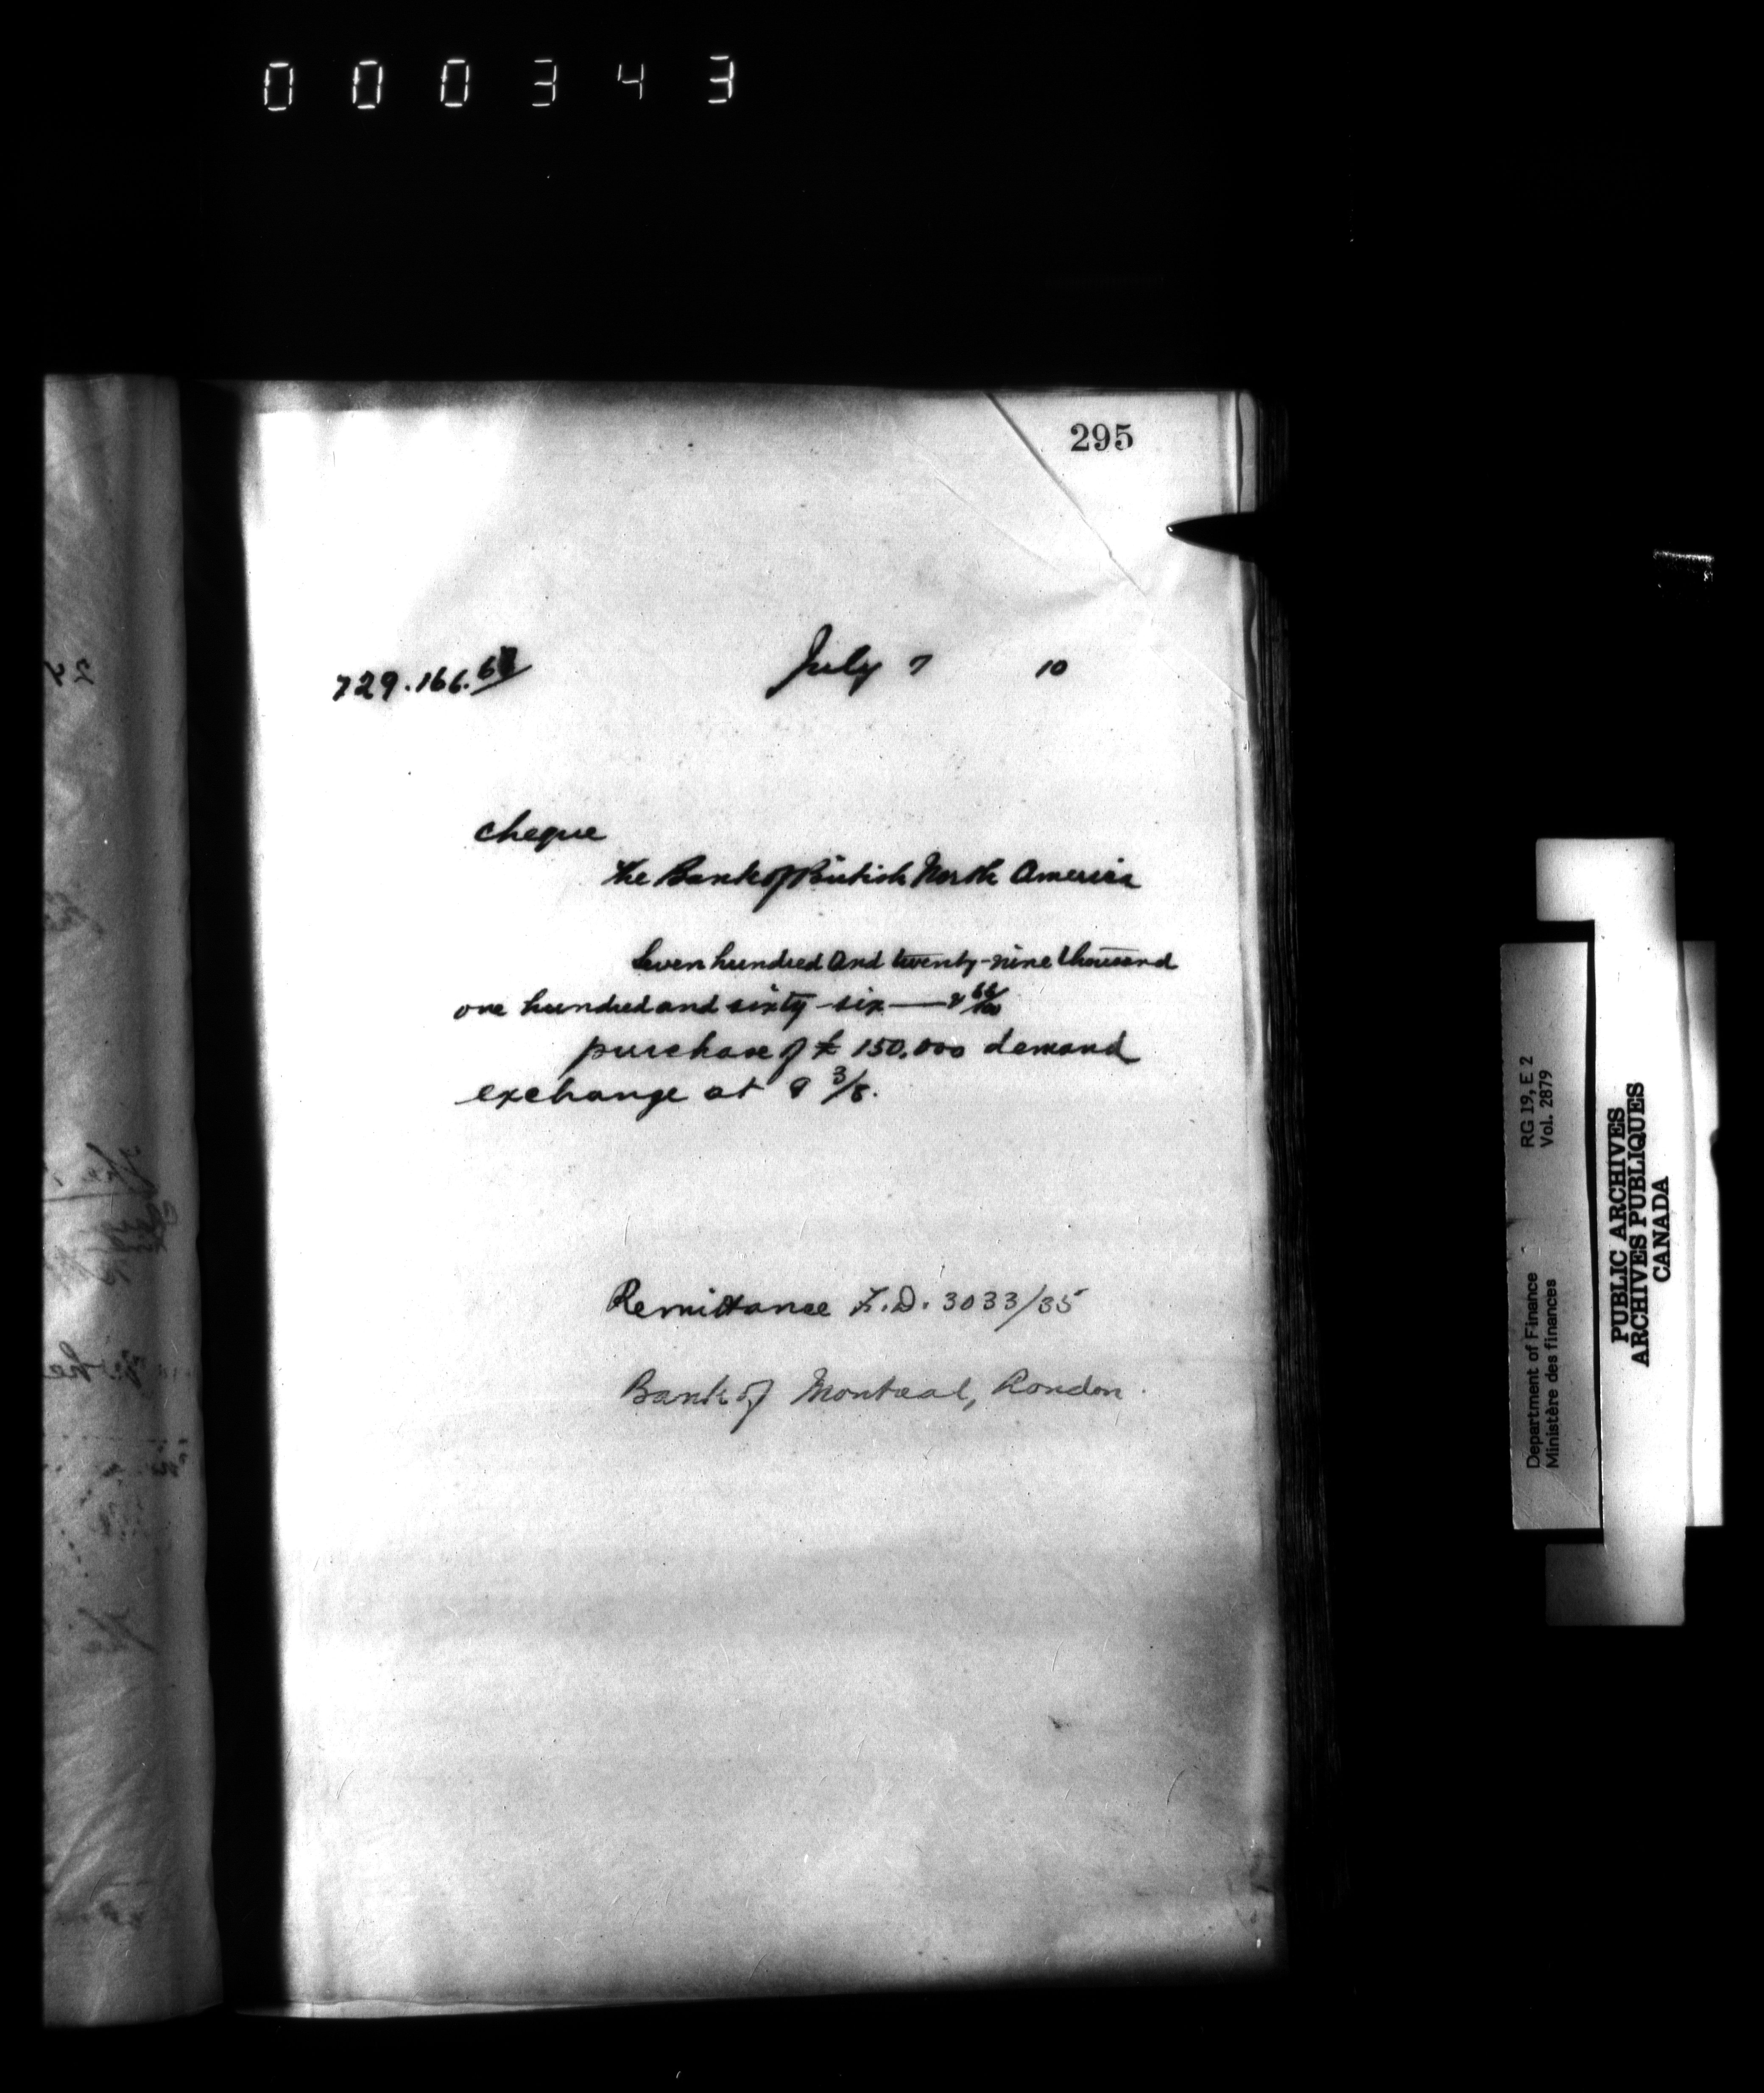 000343
295
729.166.67
July 7 10
cheque
The Bank of British North America
Seven hundred and twenty-nine thousand
one hundred and sixty-six — & 66/100
purchase of £ 150.000 demand
exchange at 9 3/8.
Remittance F.D. 3033/35
Bank of Montreal, London.
Department of Finance RG 19, E 2
Ministère des finances Vol. 2879
PUBLIC ARCHIVES
ARCHIVES PUBLIQUES
CANADA